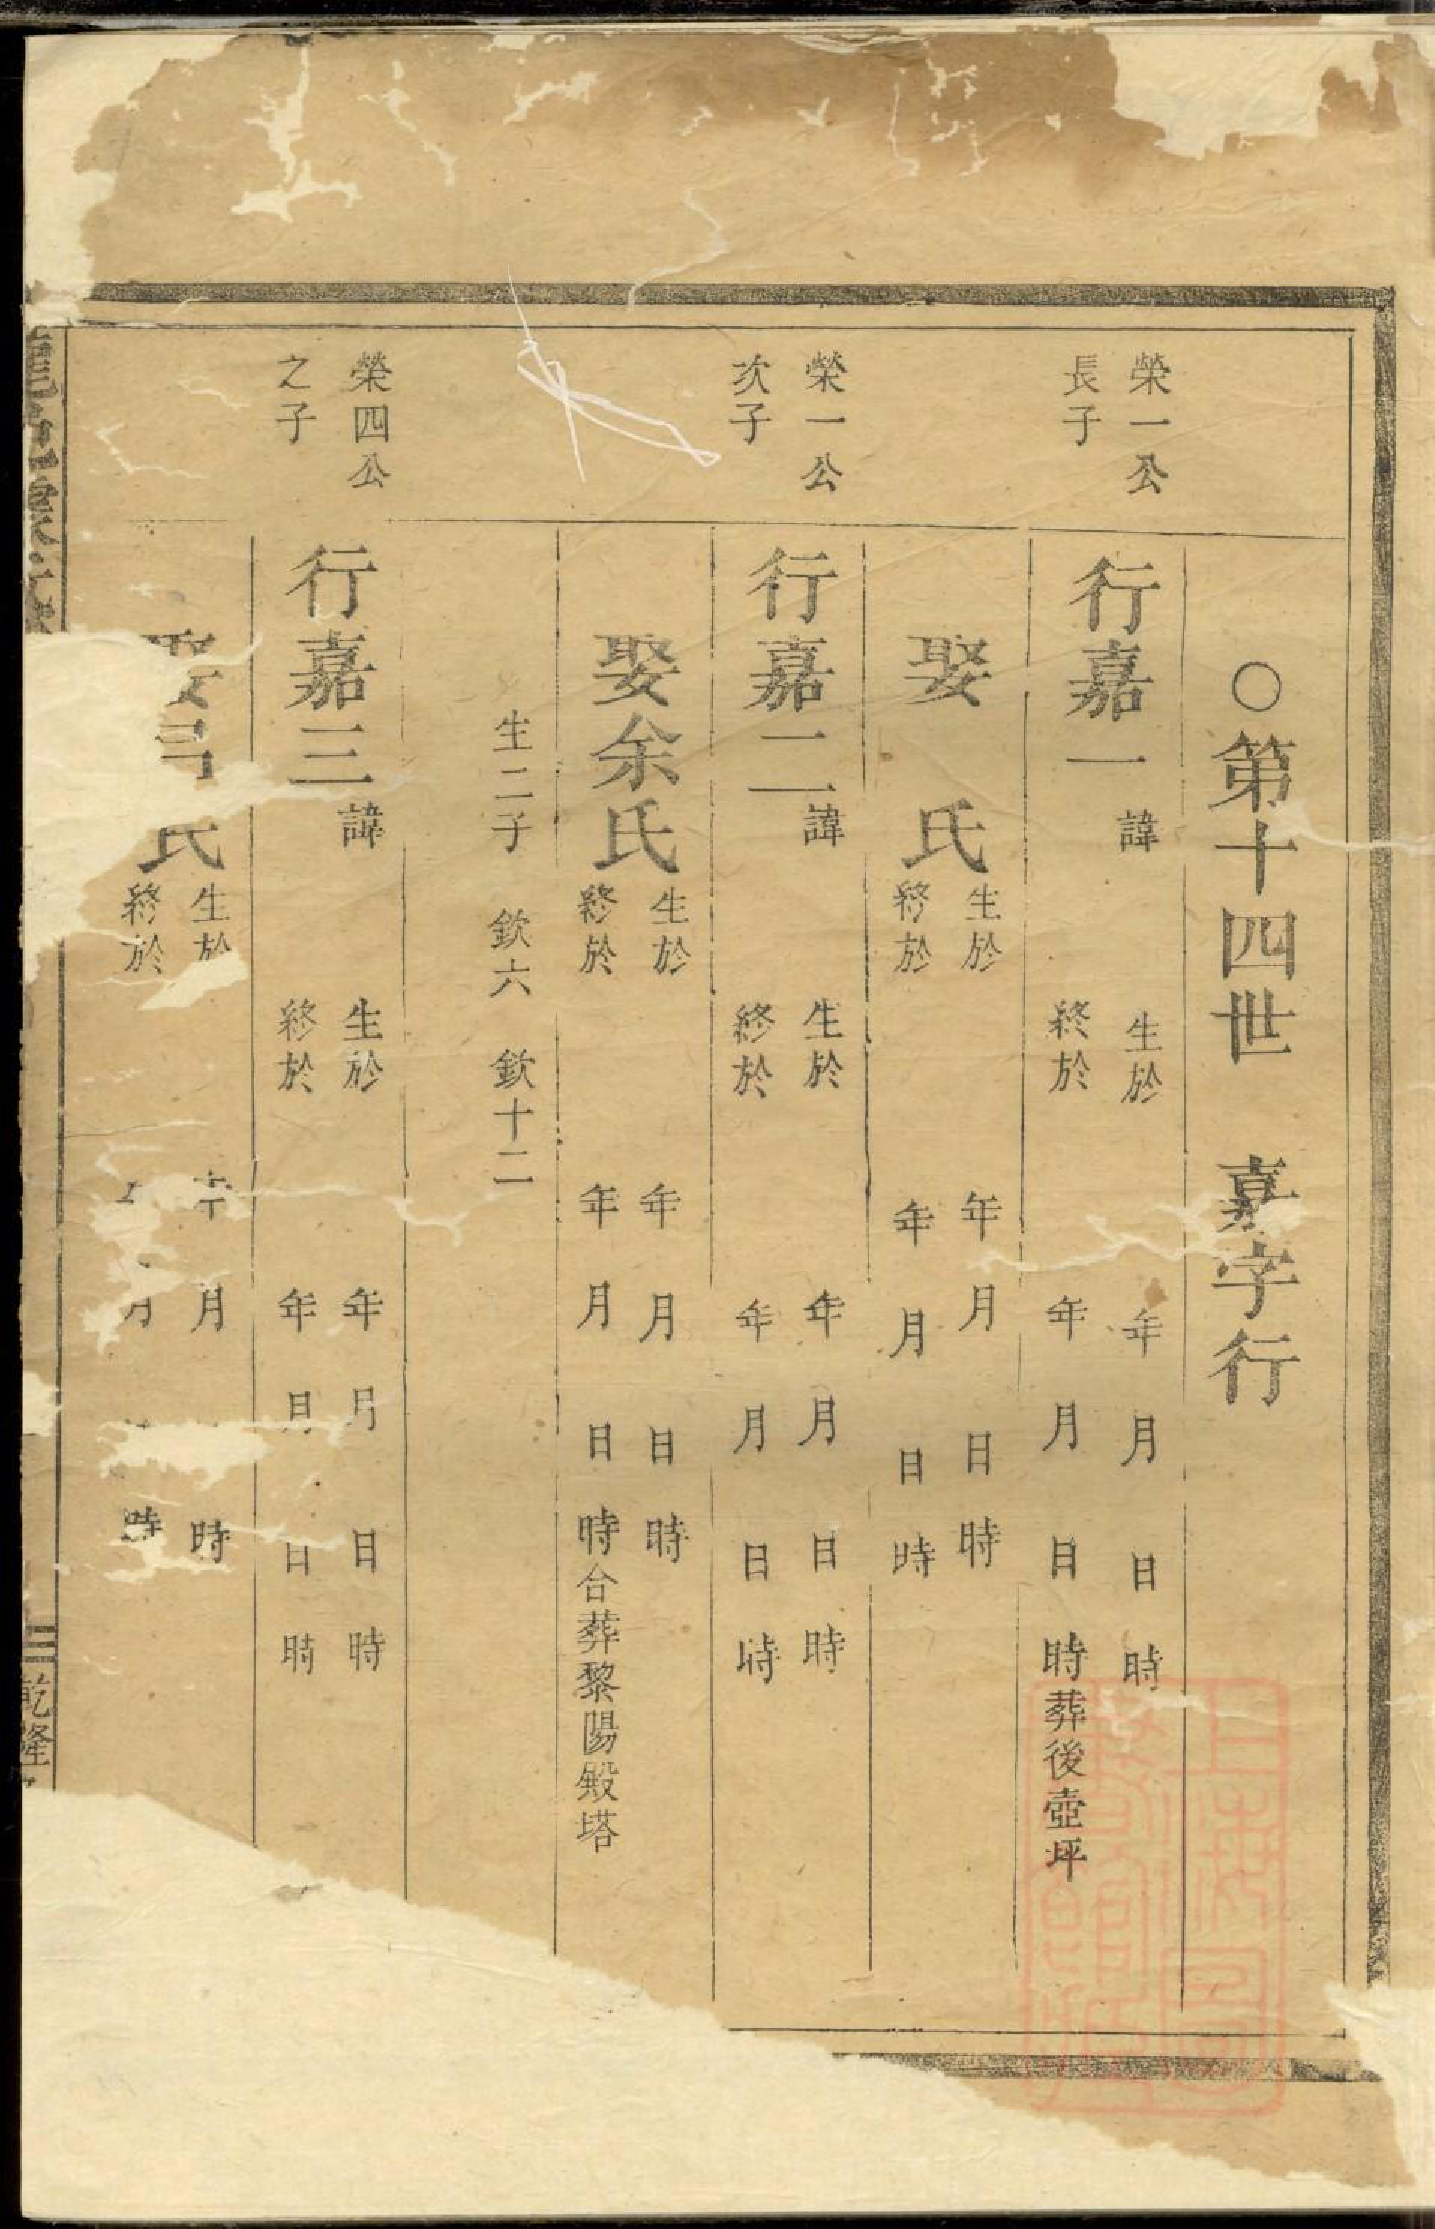 ○第十四世 嘉字行
榮一公
長子
行嘉一
諱 生於 年 月 日 時
終於 年 月 日 時葬後壺坪
娶 氏
生於 年 月 日 時
終於 年 月 日 時
榮一公
次子
行嘉二
諱 生於 年 月 日 時
終於 年 月 日 時
娶余氏
生於 年 月 日 時
終於 年 月 日 時合葬黎陽殿塔
生二子 欽六 欽十二
榮四公
之子
行嘉三
諱 生於 年 月 日 時
終於 年 月 日 時
娶 氏
生於 年 月 時
終於 月 時
乾隆
上海圖書館藏